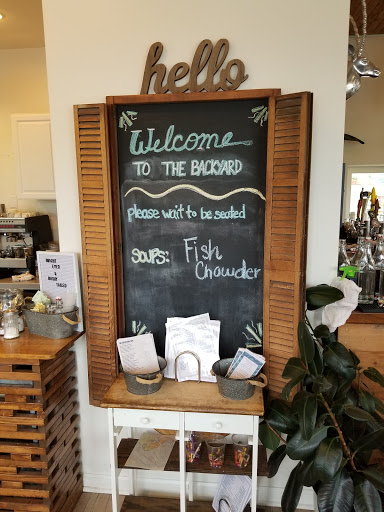 hello
Welcome
TO THE BACKYARD
please wait to be seated
SOUPS: Fish
Chowder